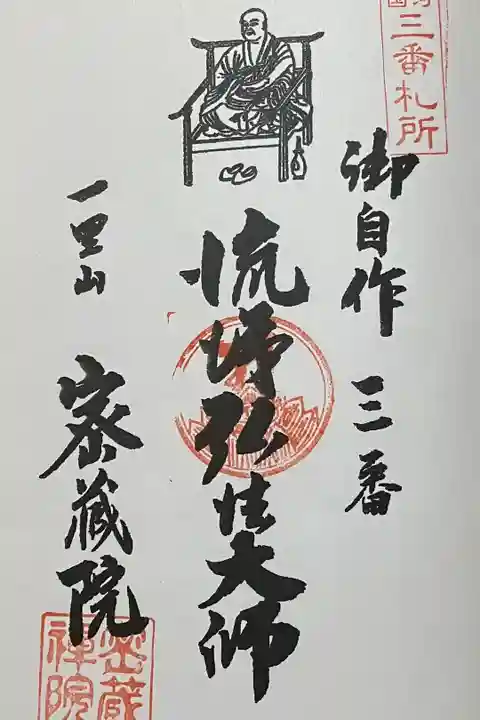 三番札所
御自作 三番
流涕弘法大師
一里山 密蔵院
密蔵
禅院